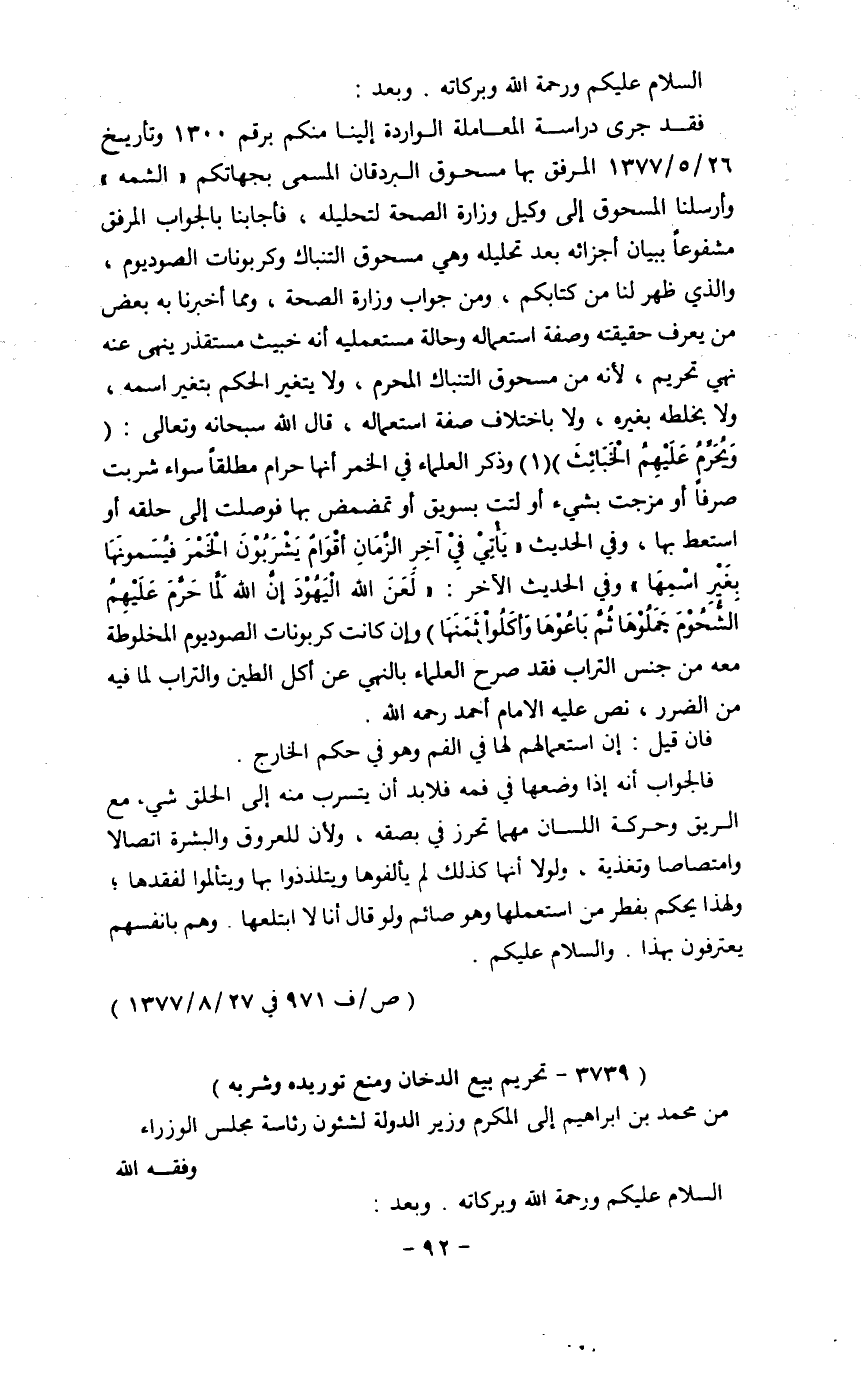 السلام عليكم ورحمة الله وبركاته . وبعد :
فقـد جرى دراسـة المعـاملة الـواردة إلينـا منكم برقم ١٣٠٠ وتأريـخ
١٣٧٧/٥/٢٦ المـرفق بها مسحـوق الـبردقان المسمى بجهاتكم « الشمه »
وأرسلنا المسحوق إلى وكيل وزارة الصحة لتحليله ، فأجابنا بالجواب المرفق
مشفوعاً ببيان أجزائه بعد تحليله وهي مسحوق التنباك وكربونات الصوديوم ،
والذي ظهر لنا من كتابكم ، ومن جواب وزارة الصحة ، ومما أخبرنا به بعض
من يعرف حقيقته وصفة استعماله وحالة مستعمليه أنه خبيث مستقذر ينهى عنه
نهي تحريم ، لأنه من مسحوق التنباك المحرم ، ولا يتغير الحكم بتغير اسمه ،
ولا بخلطه بغيره ، ولا باختلاف صفة استعماله ، قال الله سبحانه وتعالى : (
وَيُحَرِّمُ عَلَيْهِمُ الْخَبَائِثَ )(١) وذكر العلماء في الخمر أنها حرام مطلقاً سواء شربت
صرفاً أو مزجت بشيء أو لتت بسويق أو تمضمض بها فوصلت إلى حلقه أو
استعط بها ، وفي الحديث « يَأْتِيْ فِيْ آخِرِ الزَّمَانِ أَقْوَامٌ يَشْرَبُوْنَ الْخَمْرَ فَيُسَمونَهَا
بِغَيْرِ اسْمِهَا » وفي الحديث الآخر : « لَعَنَ الله الْيَهُوْدَ إِنَّ الله لَمَّا حَرَّمَ عَلَيْهِمُ
الشُّحُوْمَ جَمَلُوْهَا ثُمَّ بَاعُوْهَا وَأَكَلُواْ ثَمَنَهَا ) وإن كانت كربونات الصوديوم المخلوطة
معه من جنس التراب فقد صرح العلماء بالنهي عن أكل الطين والتراب لما فيه
من الضرر ، نص عليه الامام أحمد رحمه الله .
فان قيل : إن استعمالهم لها في الفم وهو في حكم الخارج .
فالجواب أنه إذا وضعها في فمه فلابد أن يتسرب منه إلى الحلق شيء مع
الـريق وحـركة اللسـان مهما تحرز في بصقه ، ولأن للعروق والبشرة اتصالا
وامتصاصا وتغذية ، ولولا أنها كذلك لم يألفوها ويتلذذوا بها ويتألموا لفقدها ؛
ولهذا يحكم بفطر من استعملها وهو صائم ولو قال أنا لا ابتلعها . وهم بانفسهم
يعترفون بهذا . والسلام عليكم .
( ص/ف ٩٧١ في ١٣٧٧/٨/٢٧ )
( ٣٧٣٩ - تحريم بيع الدخان ومنع توريده وشربه )
من محمد بن ابراهيم إلى المكرم وزير الدولة لشئون رئاسة مجلس الوزراء
وفقـه الله
السلام عليكم ورحمة الله وبركاته . وبعد :
- ٩٢ -